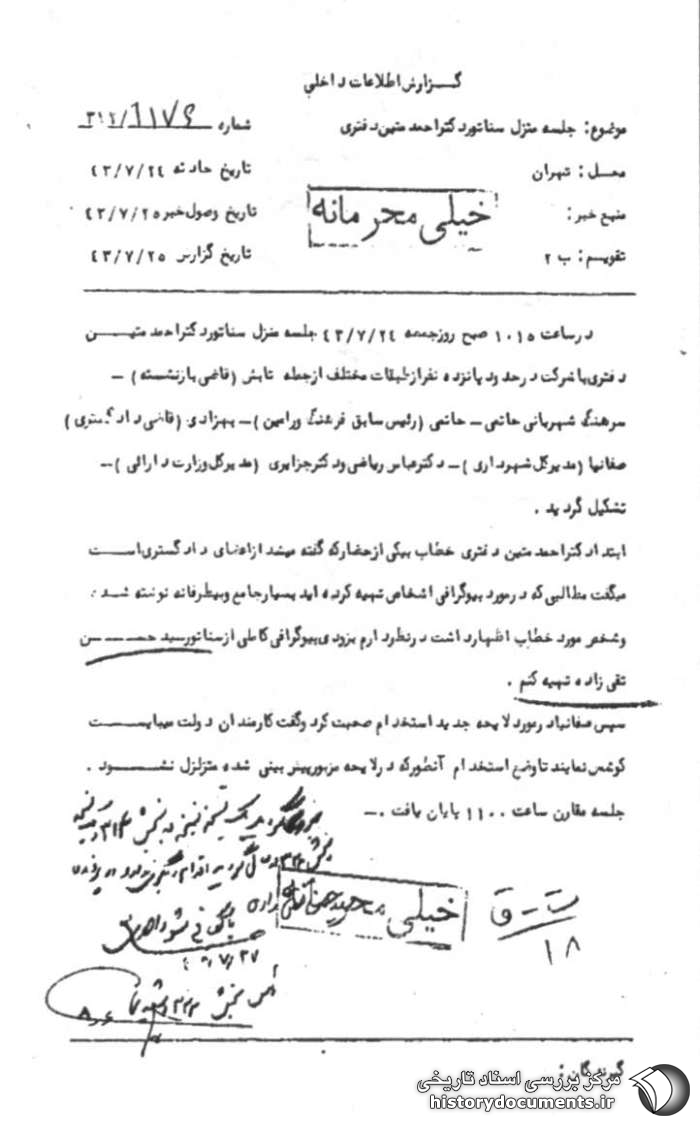 گزارش اطلاعات داخلی
موضوع: جلسه منزل سناتور دکتر احمد متین دفتری
شماره
محل: تهران
تاریخ حادثه ۴۳/۷/۲۴
منبع خبر:
خیلی محرمانه
تاریخ وصول خبر ۴۳/۷/۲۵
تقویم: ب ۲
تاریخ گزارش ۴۳/۷/۲۵
در ساعت ۱۰۱۵ صبح روز جمعه ۴۳/۷/۲۴ جلسه منزل سناتور دکتر احمد متین
دفتری با شرکت در حدود پانزده نفر از طبقات مختلف از جمله تابش (قاضی بازنشسته) –
سرهنگ شهربانی حاتمی – حاتمی (رئیس سابق فرهنگ ورامین) – بهزادی (قاضی دادگستری)
صفانیا (مدیر کل شهرداری) – دکتر عباس ریاضی و دکتر جزایری (مدیر کل وزارت دارائی) –
تشکیل گردید.
ابتدا دکتر احمد متین دفتری خطاب بیکی از حضار که گفته میشد از اعضای دادگستری است
میگفت مطالبی که در مورد بیوگرافی اشخاص تهیه کرده اید بسیار جامع و بیطرفانه نوشته شده.
و شخص مورد خطاب اظهار داشت در نظر دارم بزودی بیوگرافی کاملی از سناتور سید حسن
تقی زاده تهیه کنم.
سپس صفانیا در مورد لایحه جدید استخدام صحبت کرد و گفت کارمندان دولت میبایست
کوشش نمایند تا وضع استخدام آنطور که در لایحه مزبور پیش بینی شده متزلزل نشود.
جلسه مقارن ساعت ۱۱۰۰ پایان یافت. –
خیلی محرمانه
ت – ق
۱۸
گیرندگان:
مرکز بررسی اسناد تاریخی
historydocuments.ir